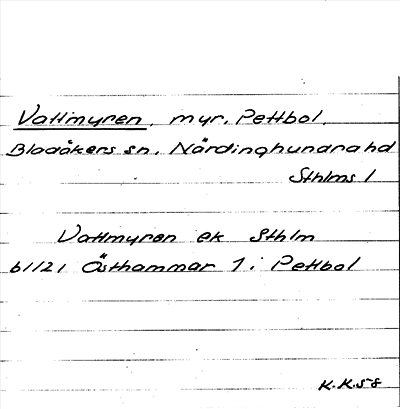 Vattmyren, myr. Pettbol.
Bladåkers sn. Närdinghundra hd
Sthlms l
Vattmyren ek Sthlm
61121 Östhammar 1 i Pettbol
K.K.58